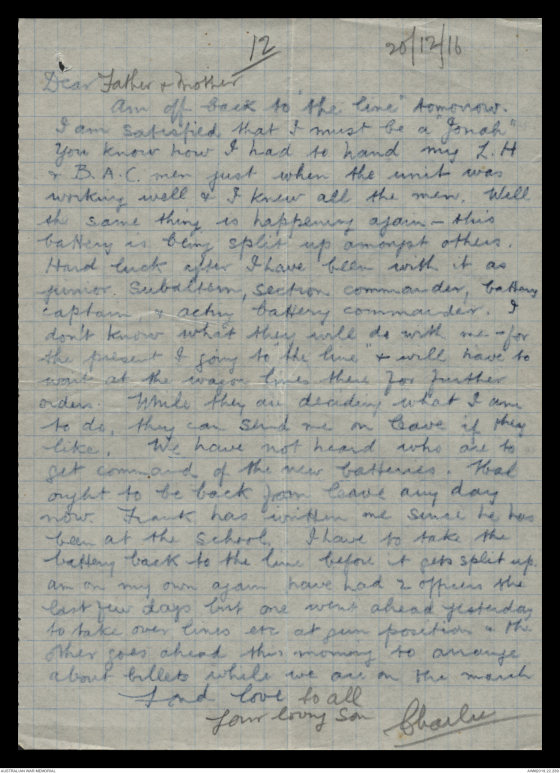 12
20/12/16
Dear Father & Mother
Am off back to "the line" tomorrow.
I am satisfied that I must be a "Jonah"
You know how I had to hand my L.H
& B.A.C. men just when the unit was
working well & I knew all the men. Well
the same thing is happening again - this
battery is being split up amongst others.
Hard luck after I have been with it as
junior subaltern, section commander, battery
captain & acting battery commander. I
don't know what they will do with me - for
the present I going to "the line" & will have to
wait at the wagon lines there for further
orders. While they are deciding what I am
to do, they can send me on leave if they
like. We have not heard who are to
get command of the new batteries.
ought to be back from leave any day
now. Frank has written me since he has
been at the school. I have to take the
battery back to the line before it gets split up.
am on my own again have had 2 officers the
last few days but one went ahead yesterday
to take over lines etc at gun position & the
other goes ahead this morning to arrange
about billets while we are on the march
Fond love to all
Your loving Son
Charlie
AUSTRALIAN WAR MEMORIAL